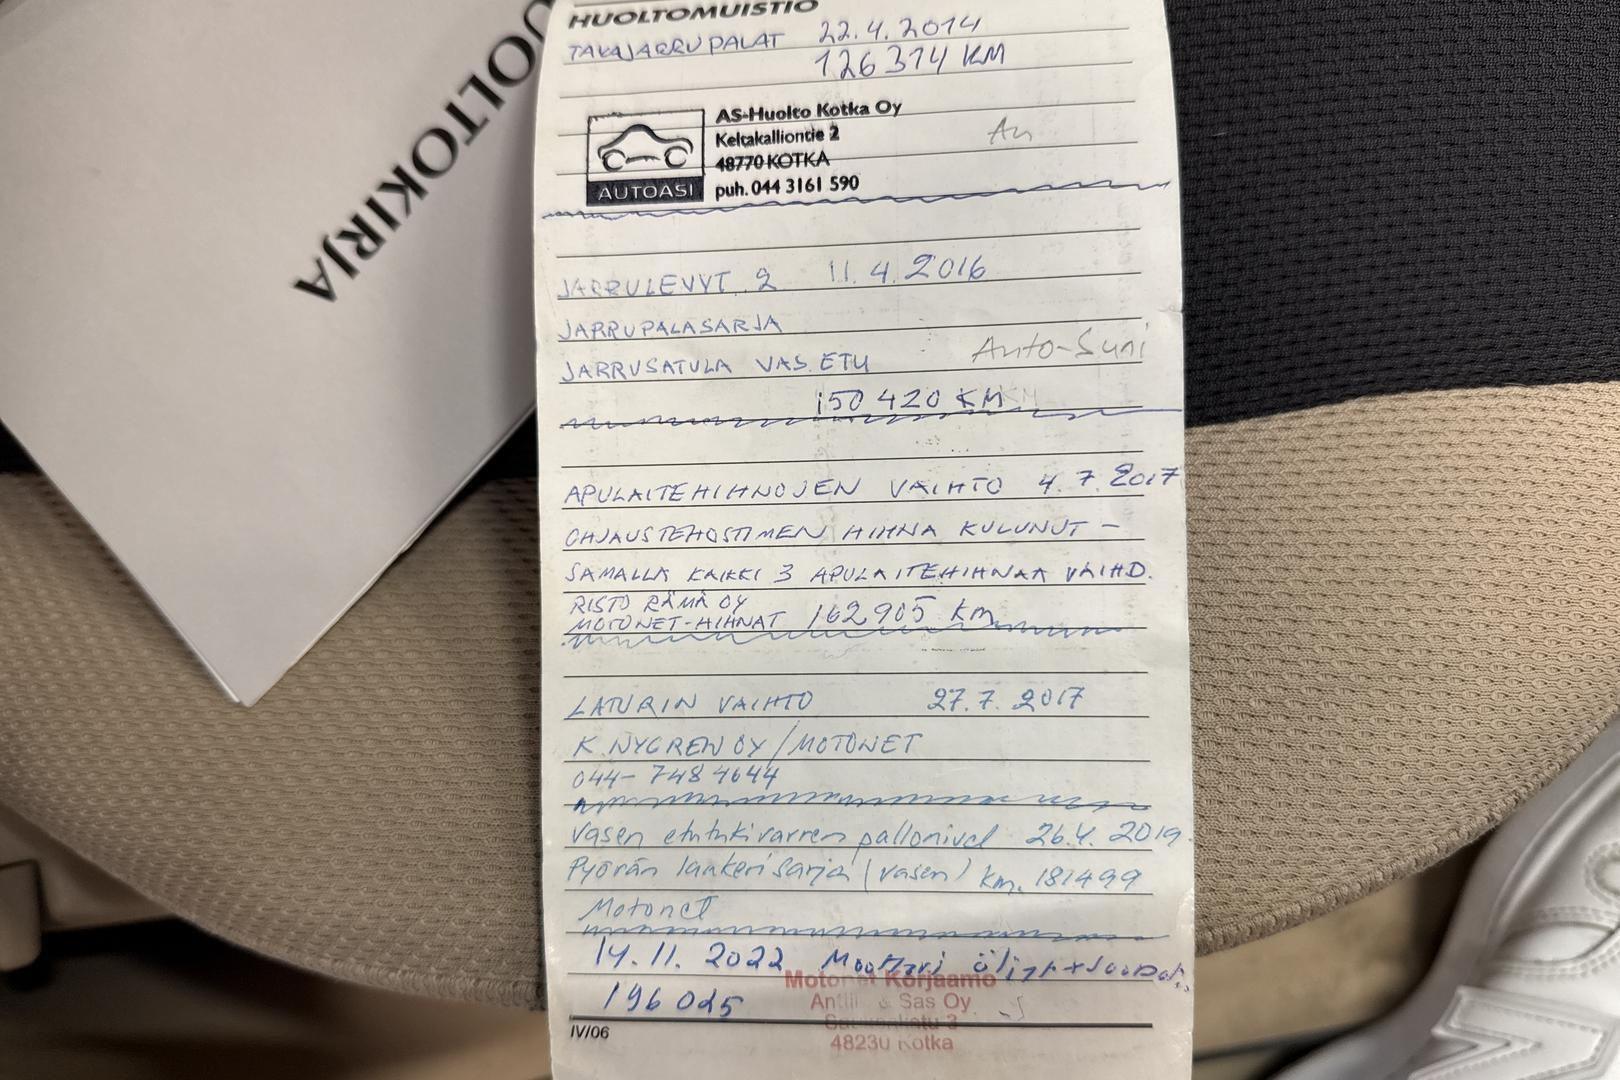 HUOLTOKIRJA
HUOLTOMUISTIO
TAKAJARRUPALAT 22.4.2014
126374 KM
AS-Huolto Kotka Oy
Keltakalliontie 2
48770 KOTKA
puh. 044 3161 590
AUTOASI
JARRULEVYT 2 11.4.2016
JARRUPALASARJA
JARRUSATULA VAS. ETU Auto-Suni
150 420 KM
APULAITEHIHNOJEN VAIHTO 4.7.2017
OHJAUSTEHOSTIMEN HIHNA KULUNUT –
SAMALLA KAIKKI 3 APULAITEHIHNAA VAIHD.
RISTO RÄMÄ OY
MOTONET-HIHNAT 162 905 km
LATURIN VAIHTO 27.7.2017
K. NYGREN OY / MOTONET
044- 748 4644
Vasen etutukivarren pallonivel 26.4.2019.
Pyörän laakerisarja (vasen) km. 181499
Motonet
14.11.2022 Moottori öljyt +
196 025
Motonet Korjaamo
& Sas Oy
48230 Kotka
IV/06